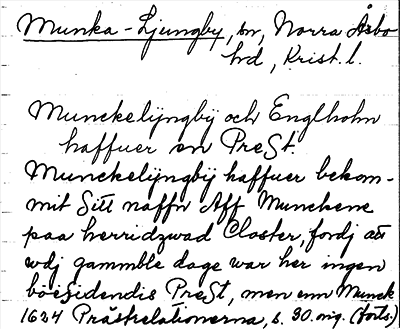 Munka-Ljungby, sn, Norra Åsbo
hd, Krist. l.
Munckelijngbij och Englholm
haffuer en PreSt.
Munckelijngbij haffuer bekom-
mit Sitt naffn Aff Munckene
paa herridzwad Closter, fordj att
wdj gammble dage war her ingen
boesidendis PreSt, men enn Munck
1624 Prästrelationerna, s. 30. orig. (forts.)